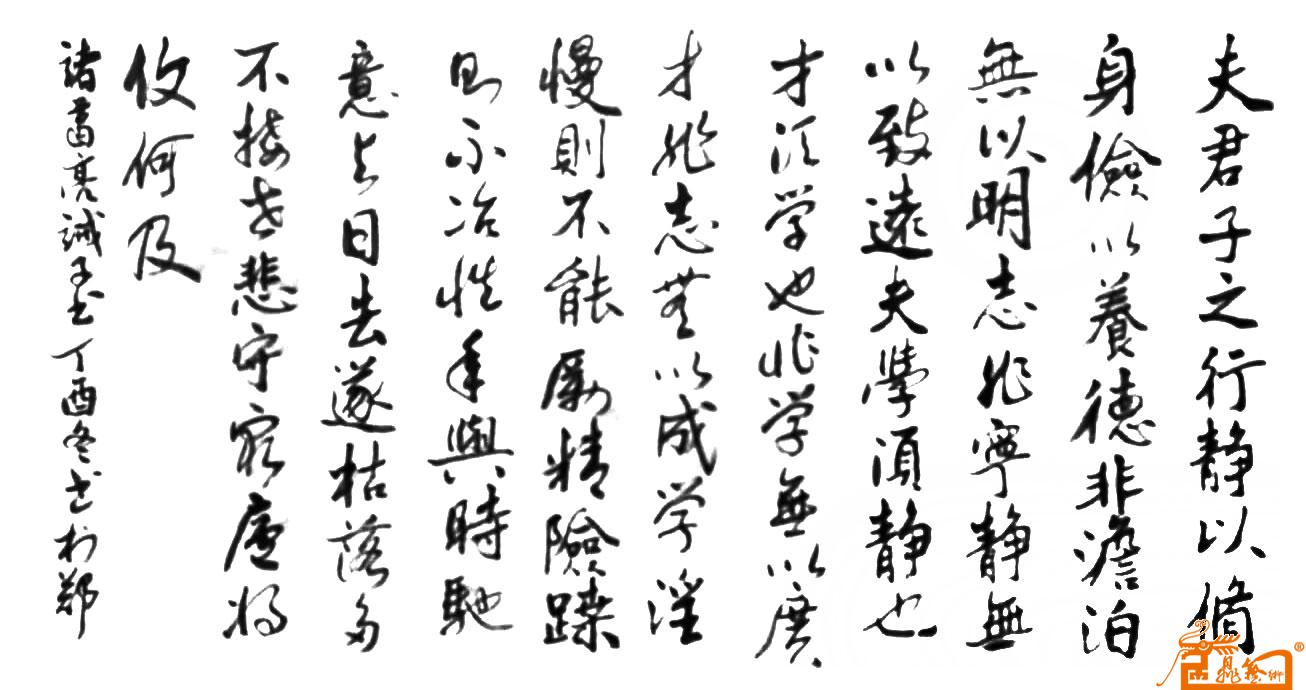 夫君子之行静以脩
身儉以養德非澹泊
無以明志非寧静無
以致遠夫學須静也
才须学也非学無以廣
才非志無以成学淫
慢則不能勵精險躁
则不冶性年與時馳
意与日去遂枯落多
不接世悲守窮廬将
復何及
諸葛亮誡子书丁酉冬书於郑